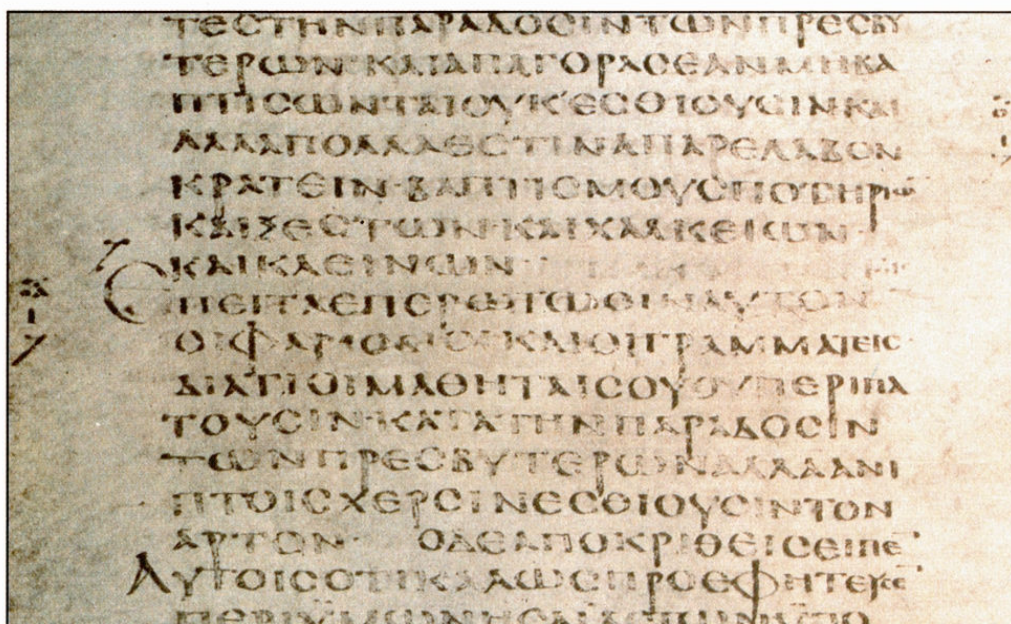 ΤΕϹΤΗΝΠΑΡΑΔΟϹΙΝΤΩΝΠΡΕϹΒΥ
ΤΕΡΩΝ·ΚΑΙΑΠΑΓΟΡΑϹΕΑΝΜΗΒΑ
ΠΤΙϹΩΝΤΑΙΟΥΚΕϹΘΙΟΥϹΙΝΚΑΙ
ΑΛΛΑΠΟΛΛΑΕϹΤΙΝΑΠΑΡΕΛΑΒΟΝ
ΚΡΑΤΕΙΝ·ΒΑΠΤΙϹΜΟΥϹΠΟΤΗΡΙΩ
ΚΑΙΞΕϹΤΩΝ·ΚΑΙΧΑΛΚΕΙΩΝ·
ΚΑΙΚΛΕΙΝΩΝ
ΕΠΕΙΤΑΕΠΕΡΩΤΩϹΙΝΑΥΤΟΝ
ΟΙΦΑΡΙϹΑΙΟΙΚΑΙΟΙΓΡΑΜΜΑΤΕΙϹ·
ΔΙΑΤΙΟΙΜΑΘΗΤΑΙϹΟΥΟΥΠΕΡΙΠΑ
ΤΟΥϹΙΝ·ΚΑΤΑΤΗΝΠΑΡΑΔΟϹΙΝ
ΤΩΝΠΡΕϹΒΥΤΕΡΩΝΑΛΛΑΑΝΙ
ΠΤΟΙϹΧΕΡϹΙΝΕϹΘΙΟΥϹΙΝΤΟΝ
ΑΡΤΟΝ· ΟΔΕΑΠΟΚΡΙΘΕΙϹΕΙΠΕ
ΑΥΤΟΙϹΟΤΙΚΑΛΩϹΠΡΟΕΦΗΤΕΥϹΕ
ΠΕΡΙΫΜΩΝΗϹΑΪΑϹ